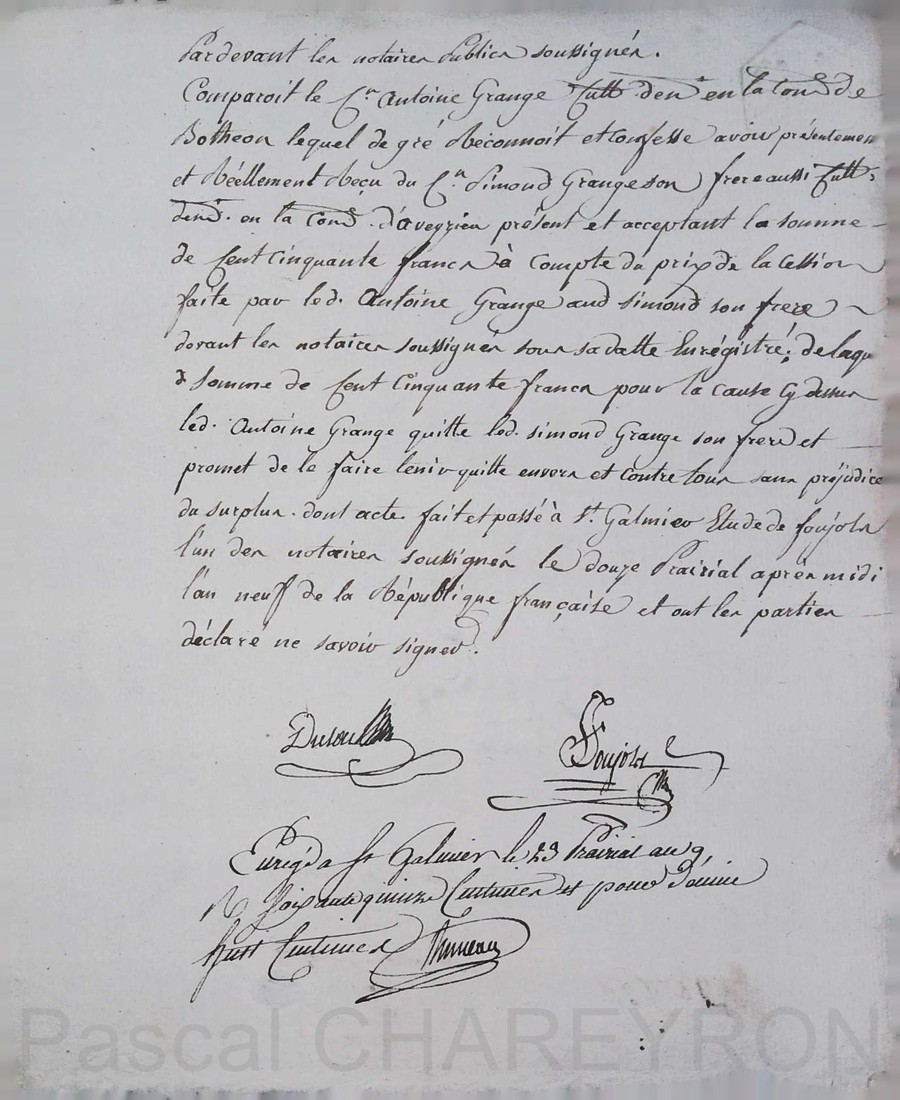 Pardevant les notaires Publics soussignés.
Comparoit le C.en Antoine Grange Cult. dem.t en la Comé de
Botheon lequel de gré Reconnoit et Confesse avoir présentemen
et Réellement Reçu du C.en Simond Grange son frere aussi Cult.r
dem.t en la Comé d'aveyzieu présent et acceptant la somme
de Cent Cinquante francs à Compte du prix de la Cession
faite par led. Antoine Grange aud simond son frere
devant les notaires soussignés sous sa datte Enrégistré; de laqu
e somme de Cent Cinquante francs pour la cause cy dessus
led. Antoine Grange quitte led. simond Grange son frere et
promet de le faire tenir quitte envers et contre tous sans préjudice
du surplus. dont acte fait et passé à St. Galmier Etude de foujols
l'un des notaires soussignés le douze Prairial après midi
l'an neuf de la République française et ont les parties
déclaré ne savoir signer.
Foujols
Enregé a St Galmier le 23 Prairial an 9
R soixante quinze Centimes et pour Dixme
huit Centimes
Pascal CHAREYRON